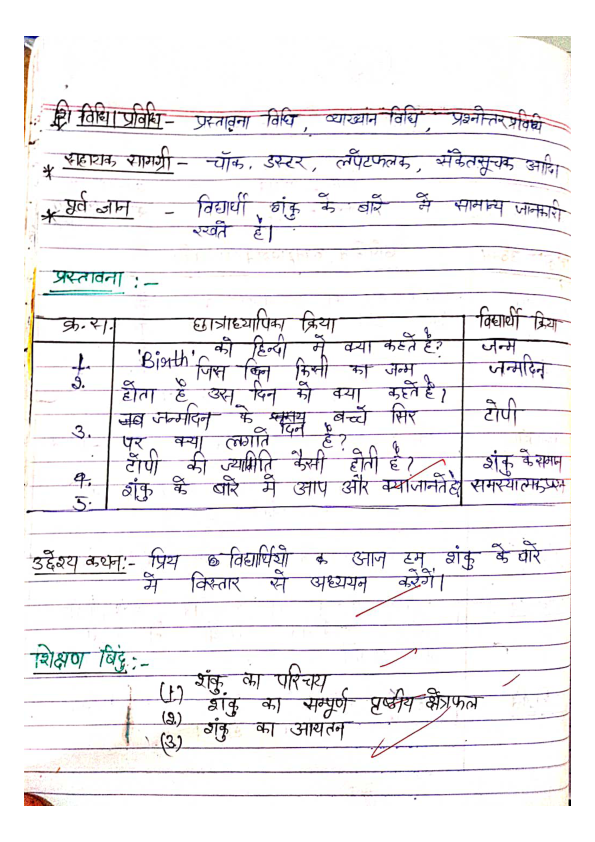 शि विधि/प्रविधि - प्रस्तावना विधि, व्याख्यान विधि, प्रश्नोत्तर प्रविधि
* सहायक सामग्री - चॉक, डस्टर, लपेटफलक, संकेतसूचक आदि।
* पूर्व ज्ञान - विद्यार्थी शंकु के बारे में सामान्य जानकारी
रखते है।
प्रस्तावना :-
क्र.स. छात्राध्यापिका क्रिया विद्यार्थी क्रिया
1. 'Birth' को हिन्दी में क्या कहते है? जन्म
2. जिस दिन किसी का जन्म जन्मदिन
होता है उस दिन को क्या कहते है?
3. जब जन्मदिन के दिन बच्चे सिर टोपी
पर क्या लगाते है?
4. टोपी की ज्यामिति कैसी होती है? शंकु के समान
5. शंकु के बारे में आप और क्या जानते है? समस्यात्मक प्रश्न
उद्देश्य कथन:- प्रिय विद्यार्थियो आज हम शंकु के बारे
में विस्तार से अध्ययन करेगें।
शिक्षण बिंदु :-
(1.) शंकु का परिचय
(2.) शंकु का सम्पूर्ण पृष्ठीय क्षेत्रफल
(3) शंकु का आयतन